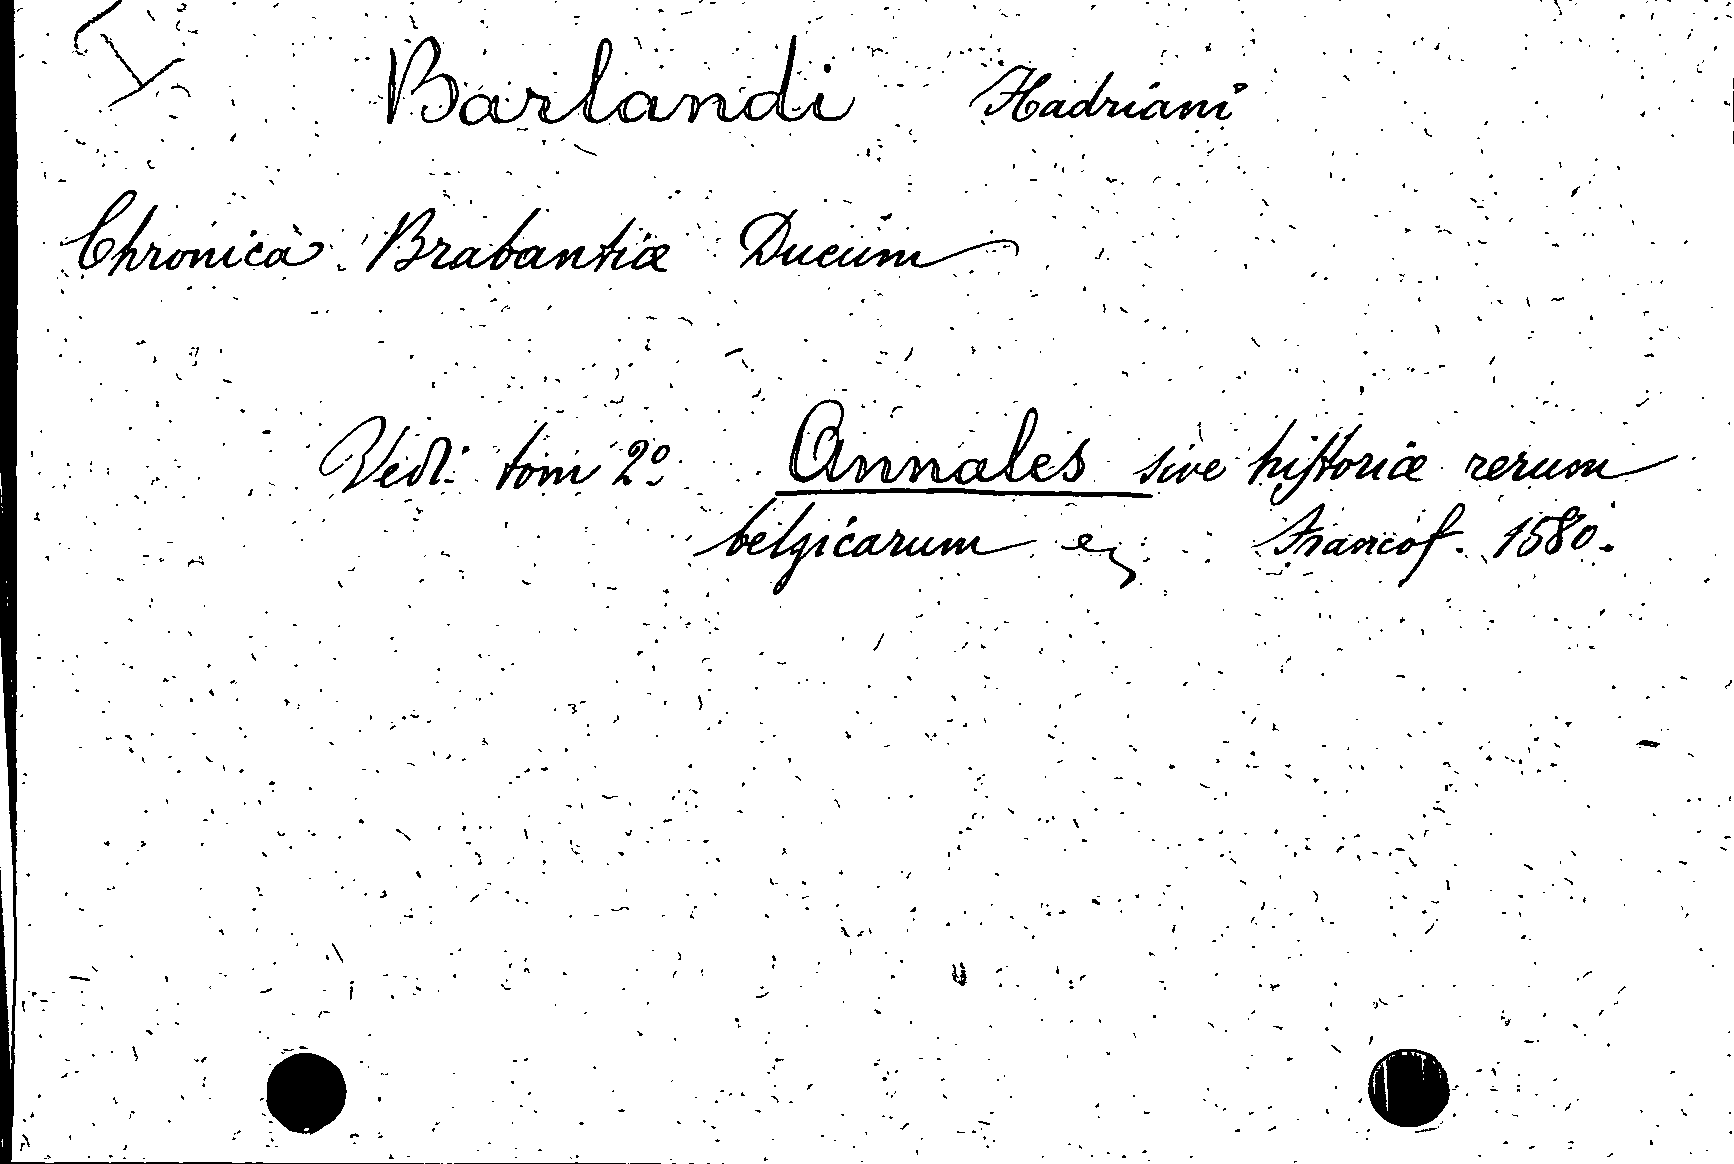 Barlandi Hadriani
Chronica Brabantiæ Ducum
Vedi: tom 2º Annales sive historiæ rerum
belgicarum Francof. 1580.